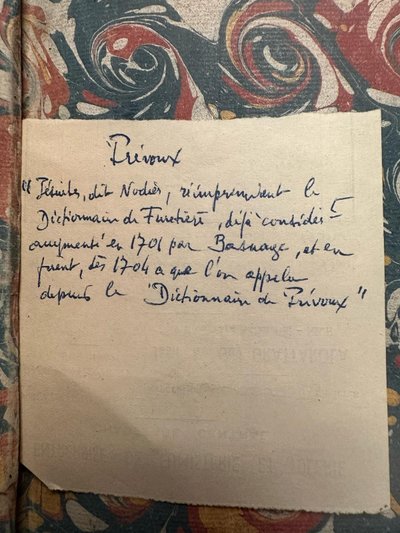 Trévoux
"Jésuites, dit Nodier, réimpriment le
Dictionnaire de Furetière, déjà considér
augmenté en 1701 par Basnage, et en
firent, dès 1704 ce que l'on appela
depuis le "Dictionnaire de Trévoux"